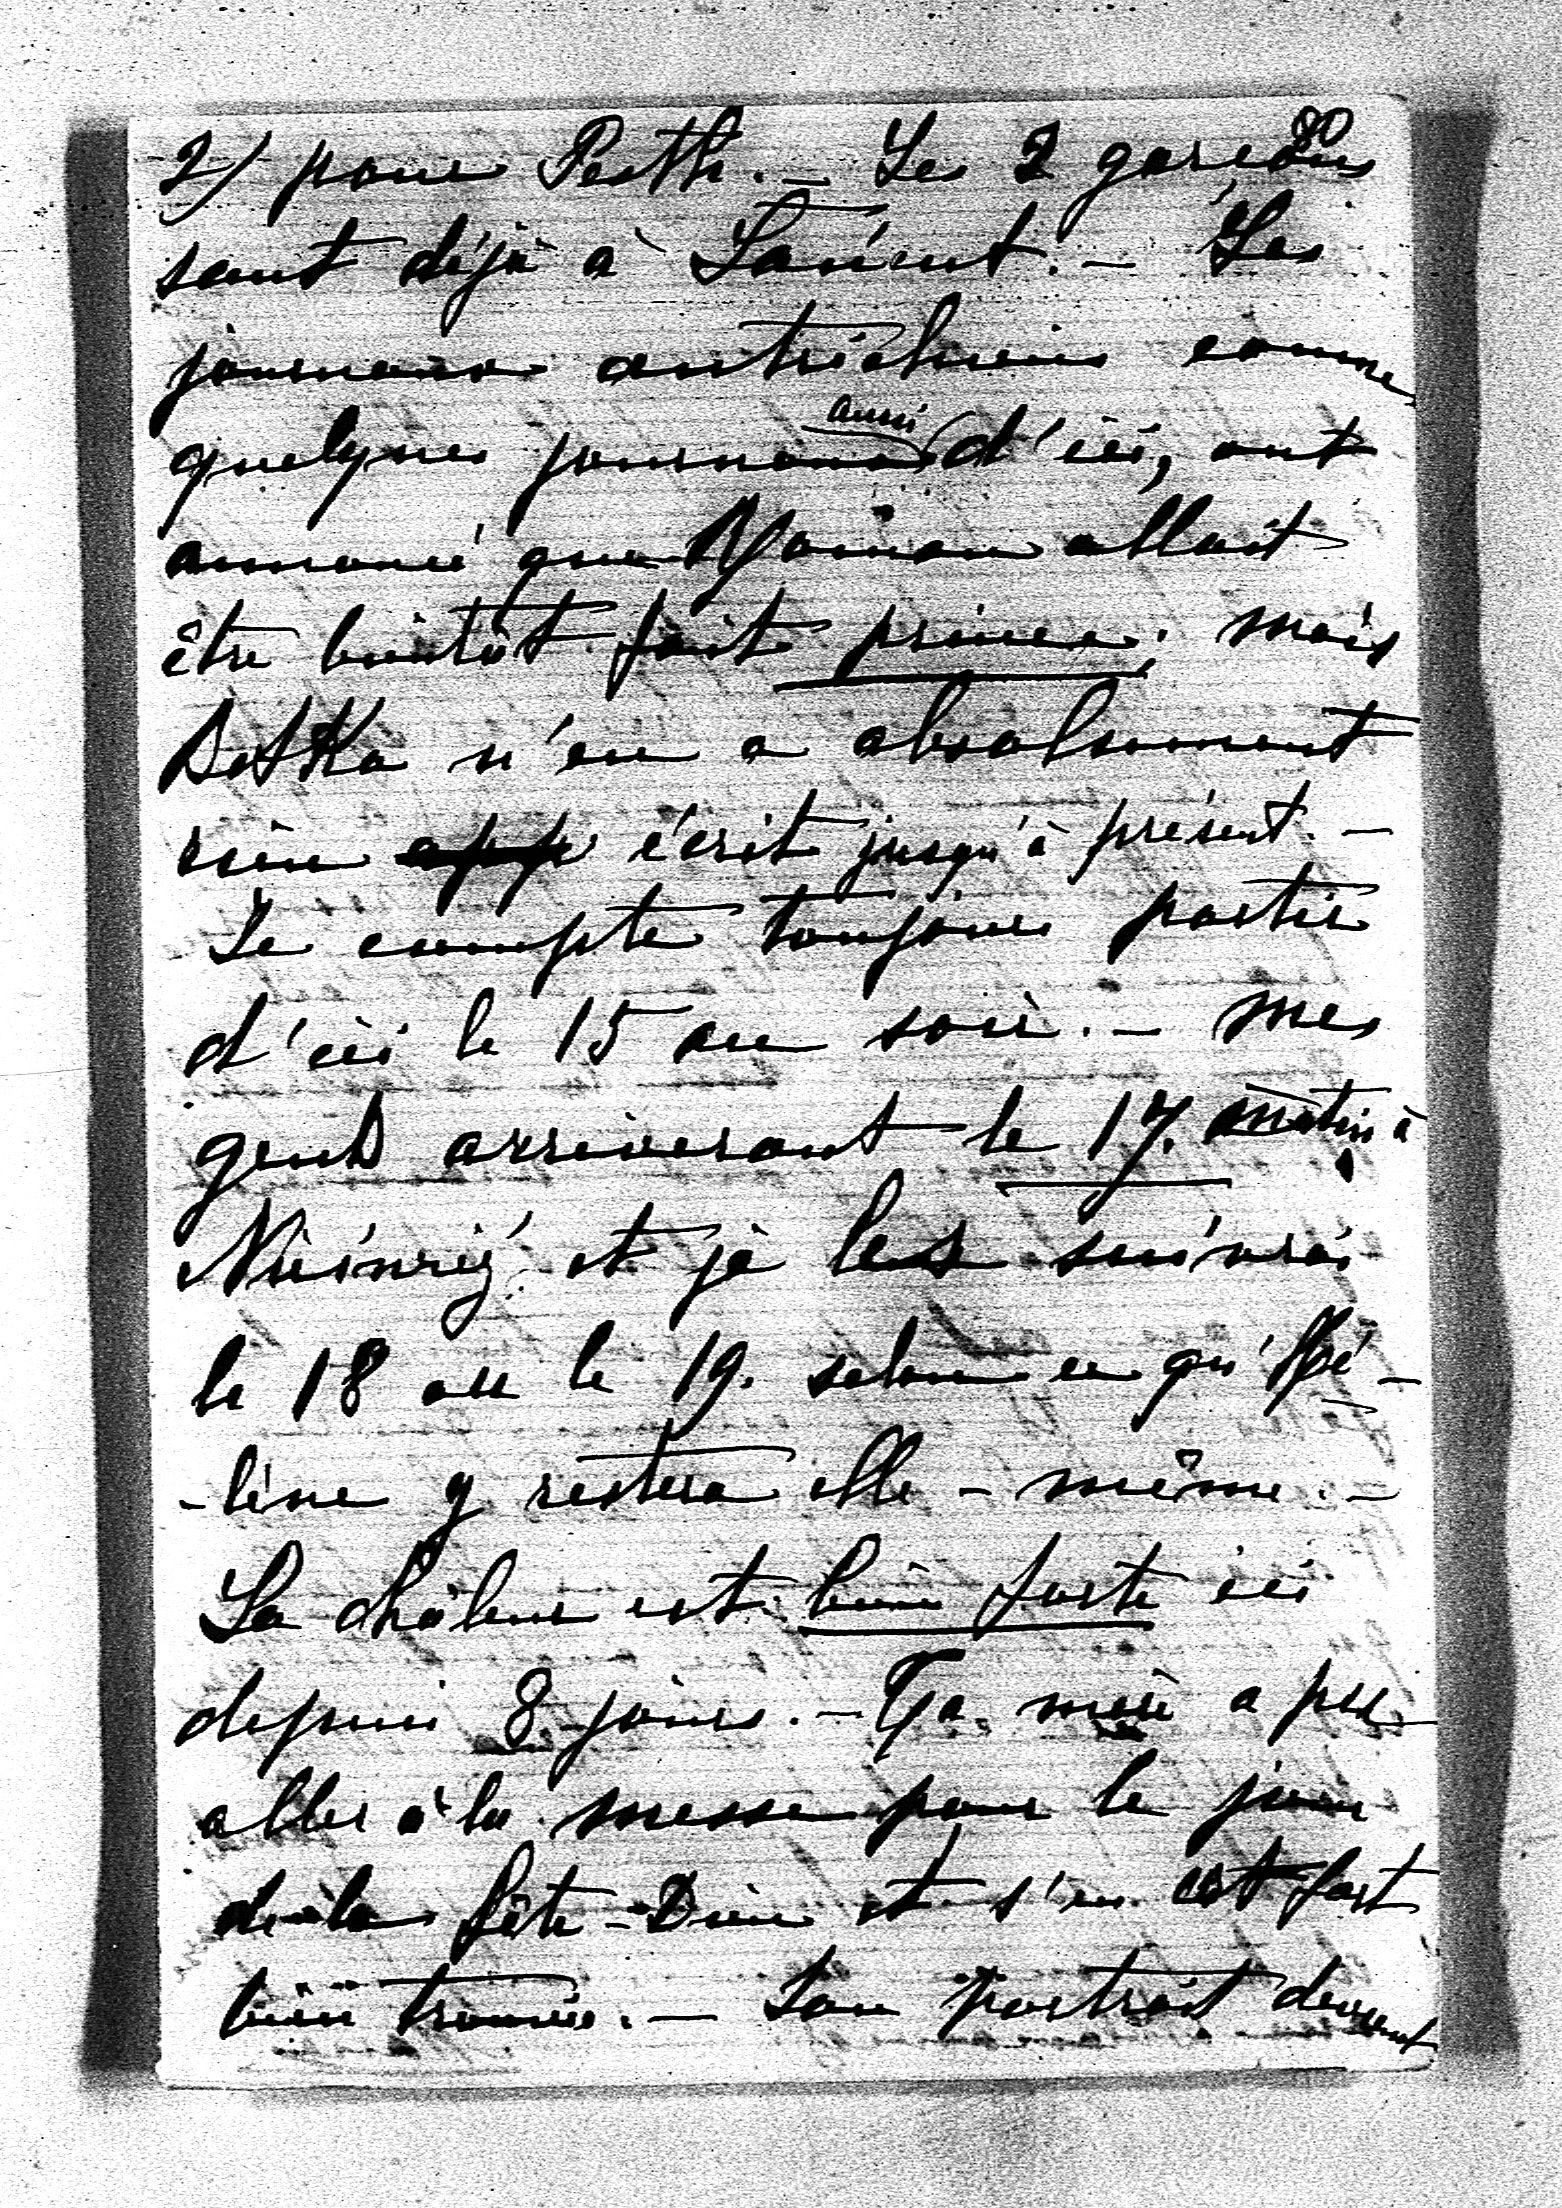 80
2) pour Pesth. – Les 2 garcons
sont déjà à Łańcut. – Les
journaux autrichiens comme
quelques journaux aussi d'ici, ont
annoncé que Roman allait
être bientôt fait prince; mais
Betka n'en a absolument
rien app écrit jusqu'à présent. –
Je compte toujours partir
d'ici le 15 au soir. – Mes
gens arriveront le 17. matin à
Nieśwież et je les suivrai
le 18 ou le 19. selon ce qu'Hé-
-lène y restera elle-même. –
La châleur est bien forte ici
depuis 8 jours. – Ta mère a pu
aller à la messe pour le jour
de la Fête-Dieu et s'en est fort
bien trouvée. – Son portrait devient